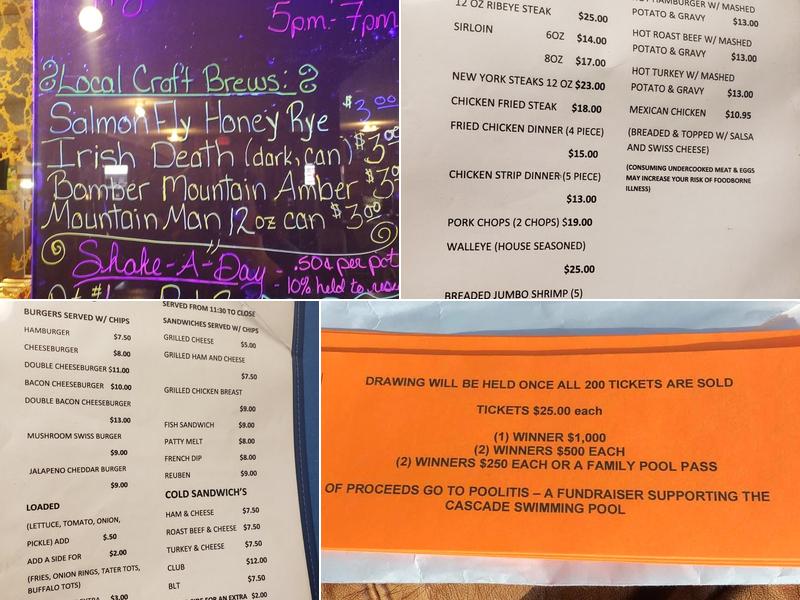 5pm.- 7pm
Local Craft Brews:
Salmon Fly Honey Rye $3.00
Irish Death (dark, can) $3.00
Bomber Mountain Amber $3.00
Mountain Man 12oz can $3.00
Shake-A-Day - .50¢ per pot
- 10% held to
12 OZ RIBEYE STEAK $25.00
SIRLOIN 6OZ $14.00
8OZ $17.00
NEW YORK STEAKS 12 OZ $23.00
CHICKEN FRIED STEAK $18.00
FRIED CHICKEN DINNER (4 PIECE)
$15.00
CHICKEN STRIP DINNER (5 PIECE)
$13.00
PORK CHOPS (2 CHOPS) $19.00
WALLEYE (HOUSE SEASONED)
$25.00
BREADED JUMBO SHRIMP (5)
HOT HAMBURGER W/ MASHED
POTATO & GRAVY $13.00
HOT ROAST BEEF W/ MASHED
POTATO & GRAVY $13.00
HOT TURKEY W/ MASHED
POTATO & GRAVY $13.00
MEXICAN CHICKEN $10.95
(BREADED & TOPPED W/ SALSA
AND SWISS CHEESE)
(CONSUMING UNDERCOOKED MEAT & EGGS
MAY INCREASE YOUR RISK OF FOODBORNE
ILLNESS)
BURGERS SERVED W/ CHIPS
HAMBURGER $7.50
CHEESEBURGER $8.00
DOUBLE CHEESEBURGER $11.00
BACON CHEESEBURGER $10.00
DOUBLE BACON CHEESEBURGER
$13.00
MUSHROOM SWISS BURGER
$9.00
JALAPENO CHEDDAR BURGER
$9.00
LOADED
(LETTUCE, TOMATO, ONION,
PICKLE) ADD $.50
ADD A SIDE FOR $2.00
(FRIES, ONION RINGS, TATER TOTS,
BUFFALO TOTS)
EXTRA $3.00
SERVED FROM 11:30 TO CLOSE
SANDWICHES SERVED W/ CHIPS
GRILLED CHEESE $5.00
GRILLED HAM AND CHEESE
$7.50
GRILLED CHICKEN BREAST
$9.00
FISH SANDWICH $9.00
PATTY MELT $8.00
FRENCH DIP $8.00
REUBEN $9.00
COLD SANDWICH'S
HAM & CHEESE $7.50
ROAST BEEF & CHEESE $7.50
TURKEY & CHEESE $7.50
CLUB $12.00
BLT $7.50
SIDE FOR AN EXTRA $2.00
DRAWING WILL BE HELD ONCE ALL 200 TICKETS ARE SOLD
TICKETS $25.00 each
(1) WINNER $1,000
(2) WINNERS $500 EACH
(2) WINNERS $250 EACH OR A FAMILY POOL PASS
OF PROCEEDS GO TO POOLITIS – A FUNDRAISER SUPPORTING THE
CASCADE SWIMMING POOL